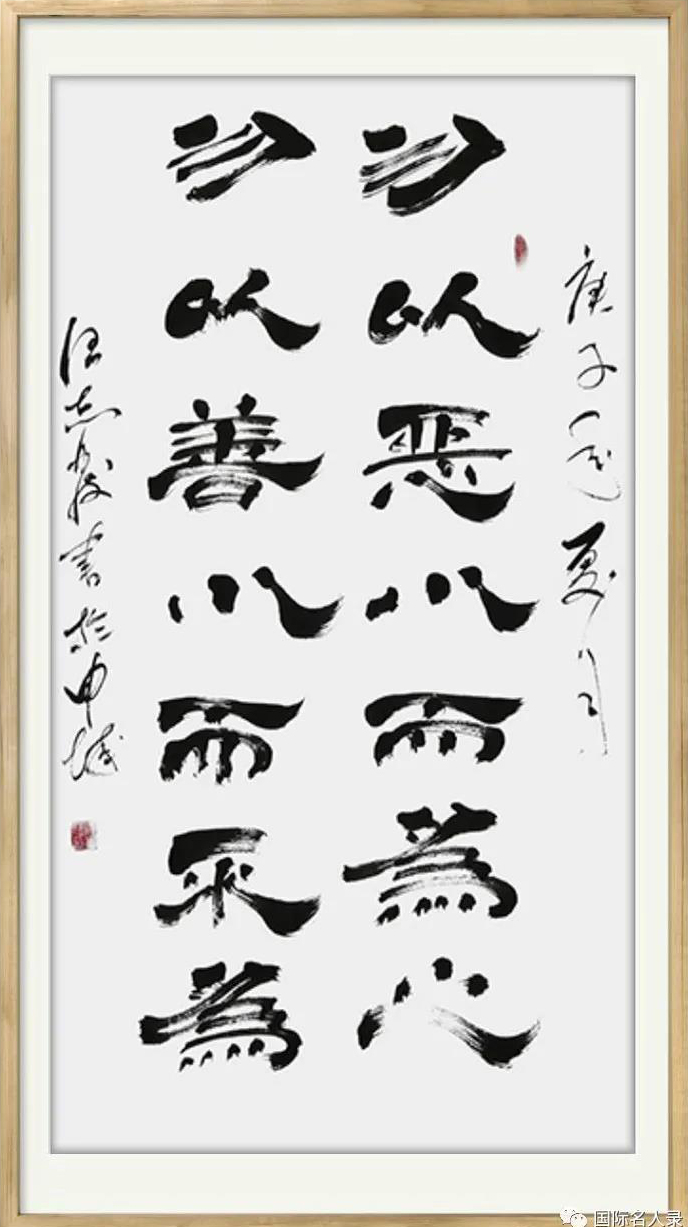 庚子夏月
勿以恶小而為之
勿以善小而不為
志書於申城
国际名人录